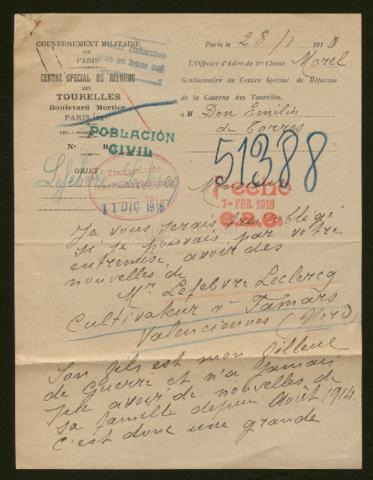 GOUVERNEMENT MILITAIRE
DE
PARIS
CENTRE SPECIAL DE REFORME
DES
TOURELLES
Boulevard Mortier
PARIS
Paris le 28/1 1918
L'Officier d'Adon de 1re Classe Morel
Gestionnaire du Centre Spécial de Réforme
de la Caserne des Tourelles.
à M Don Emilio
de Torres
POBLACIÓN
CIVIL
N°
OBJET:
Lefebvre-Leclercq
51388
11 DIC 1918
7-FEB. 1918
Je vous serais très obligé
si je pouvais par votre
entremise avoir des
nouvelles de
Mr Lefebvre Leclercq
Cultivateur à Famars
Valenciennes (Nord)
Son fils est mon filleul
de guerre et n'a jamais
pu avoir de nouvelles de
sa famille depuis Août 1914.
C'est donc une grande